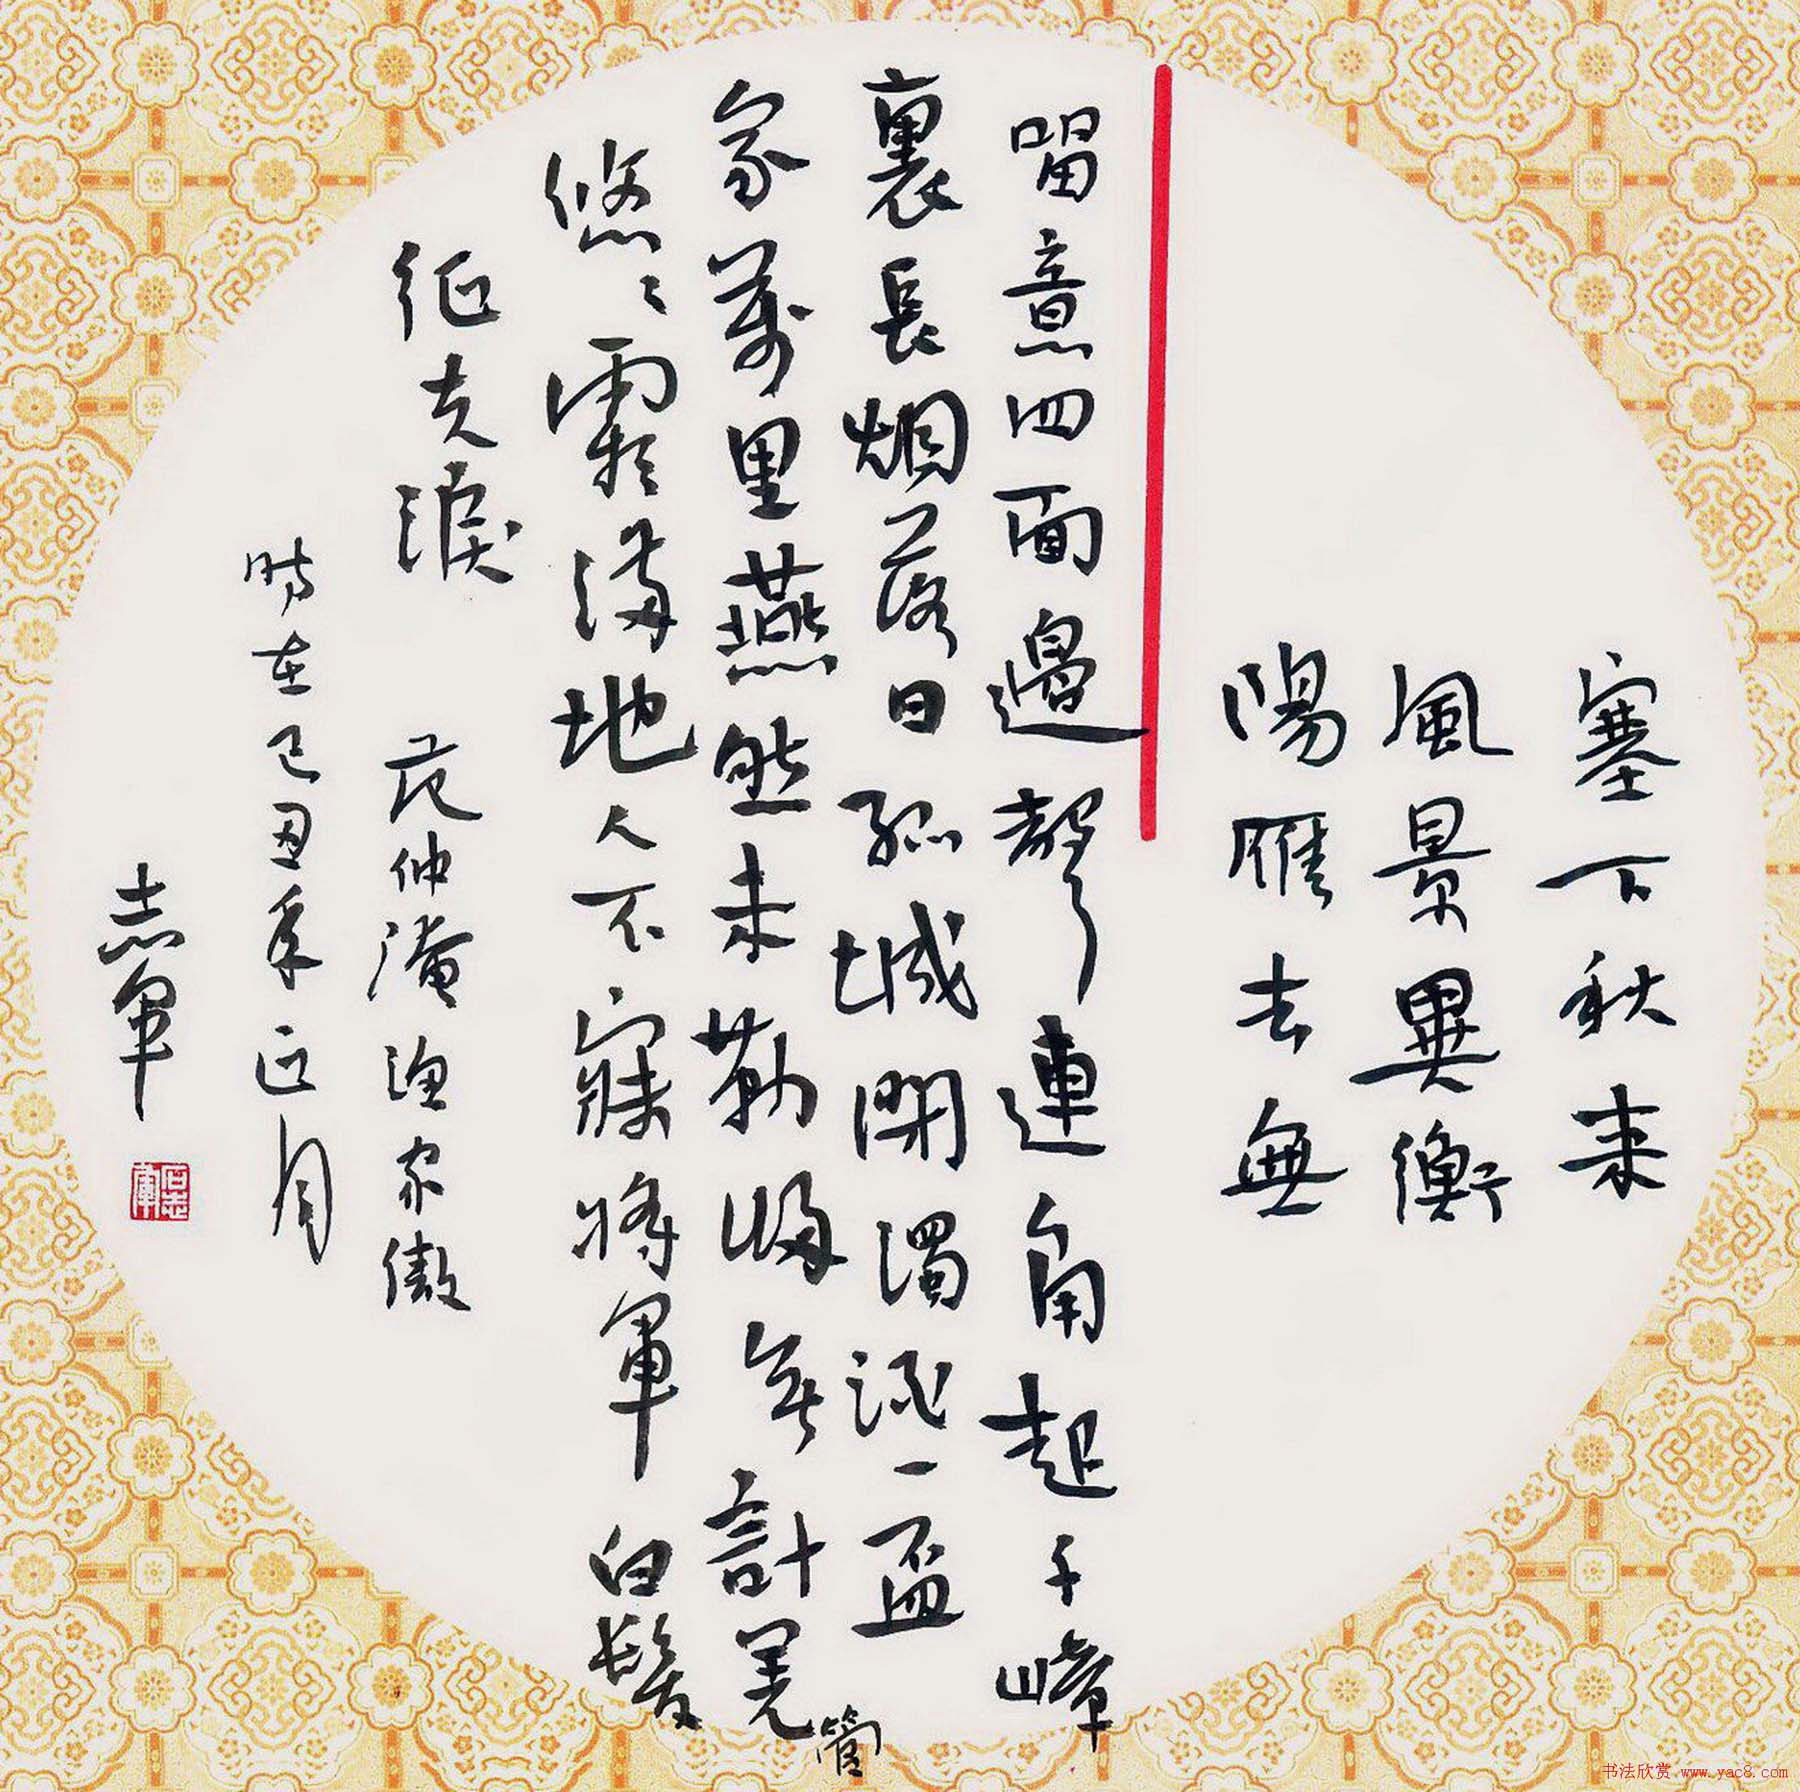 塞下秋来
風景異衡
陽雁去無
留意四面邊聲連角起千嶂
裏長烟落日孤城閉濁酒一盃
家萬里燕然未勒歸無計羌
管
悠々霜滿地人不寐將軍白髮
征夫淚
范仲淹渔家傲
時在己丑年正月
志軍
石志軍
书法欣赏 www.yac8.com